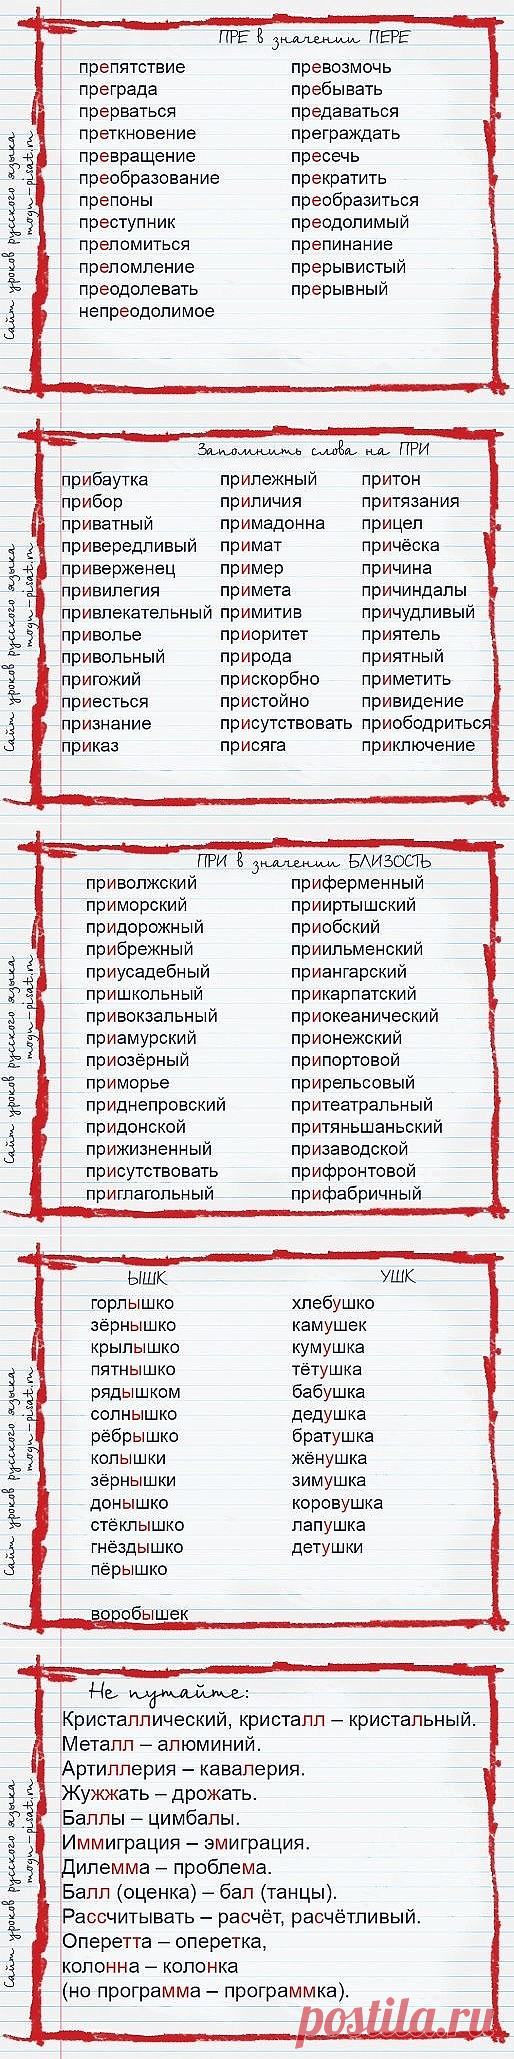 ПРЕ в значении ПЕРЕ
препятствие превозмочь
преграда пребывать
прерваться предаваться
преткновение преграждать
превращение пресечь
преобразование прекратить
препоны преобразиться
преступник преодолимый
преломиться препинание
преломление прерывистый
преодолевать прерывный
непреодолимое
Сайт уроков русского языка
mogu-pisat.ru
Запомнить слова на ПРИ
прибаутка прилежный притон
прибор приличия притязания
приватный примадонна прицел
привередливый примат причёска
приверженец пример причина
привилегия примета причиндалы
привлекательный примитив причудливый
приволье приоритет приятель
привольный природа приятный
пригожий прискорбно приметить
приесться пристойно привидение
признание присутствовать приободриться
приказ присяга приключение
Сайт уроков русского языка
mogu-pisat.ru
ПРИ в значении БЛИЗОСТЬ
приволжский приферменный
приморский прииртышский
придорожный приобский
прибрежный приильменский
приусадебный приангарский
пришкольный прикарпатский
привокзальный приокеанический
приамурский прионежский
приозёрный припортовой
приморье прирельсовый
приднепровский притеатральный
придонской притяньшаньский
прижизненный призаводской
присутствовать прифронтовой
приглагольный прифабричный
Сайт уроков русского языка
mogu-pisat.ru
ЫШК УШК
горлышко хлебушко
зёрнышко камушек
крылышко кумушка
пятнышко тётушка
рядышком бабушка
солнышко дедушка
рёбрышко братушка
колышки жёнушка
зёрнышки зимушка
донышко коровушка
стёклышко лапушка
гнёздышко детушки
пёрышко
воробышек
Сайт уроков русского языка
mogu-pisat.ru
Не путайте:
Кристаллический, кристалл – кристальный.
Металл – алюминий.
Артиллерия – кавалерия.
Жужжать – дрожать.
Баллы – цимбалы.
Иммиграция – эмиграция.
Дилемма – проблема.
Балл (оценка) – бал (танцы).
Рассчитывать – расчёт, расчётливый.
Оперетта – оперетка,
колонна – колонка
(но программа – программка).
Сайт уроков русского языка
mogu-pisat.ru
postila.ru